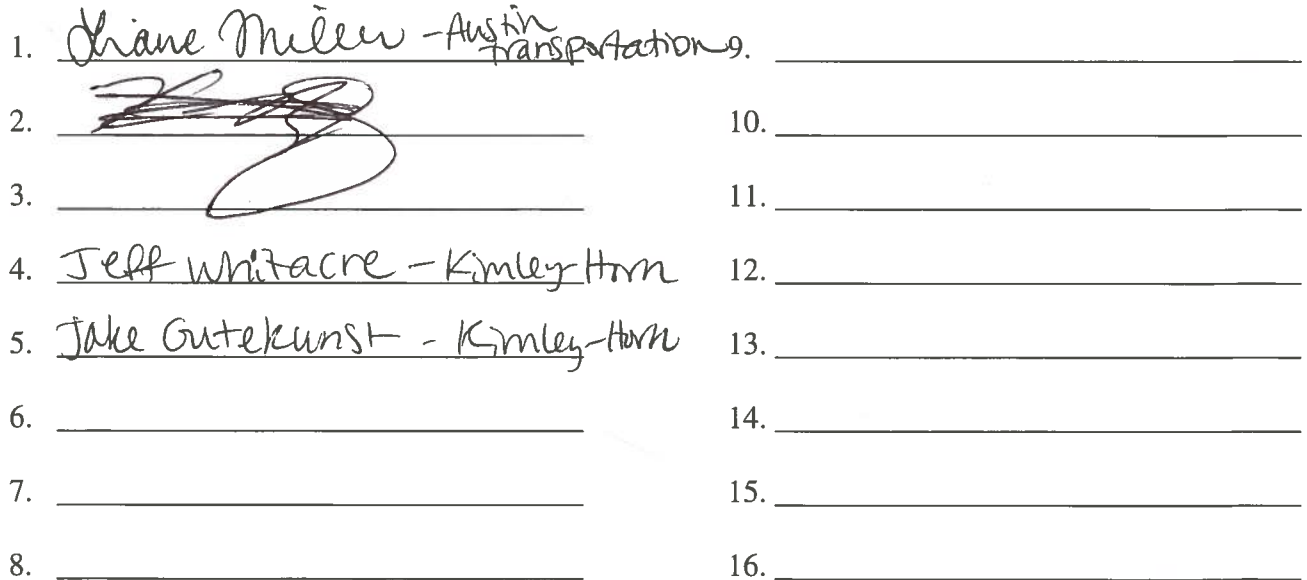 1. Liane Miller - Austin transportation
2.
3.
4. Jeff Whitacre - Kimley-Horn
5. Jake Gutekunst - Kimley-Horn
6.
7.
8.
9.
10.
11.
12.
13.
14.
15.
16.